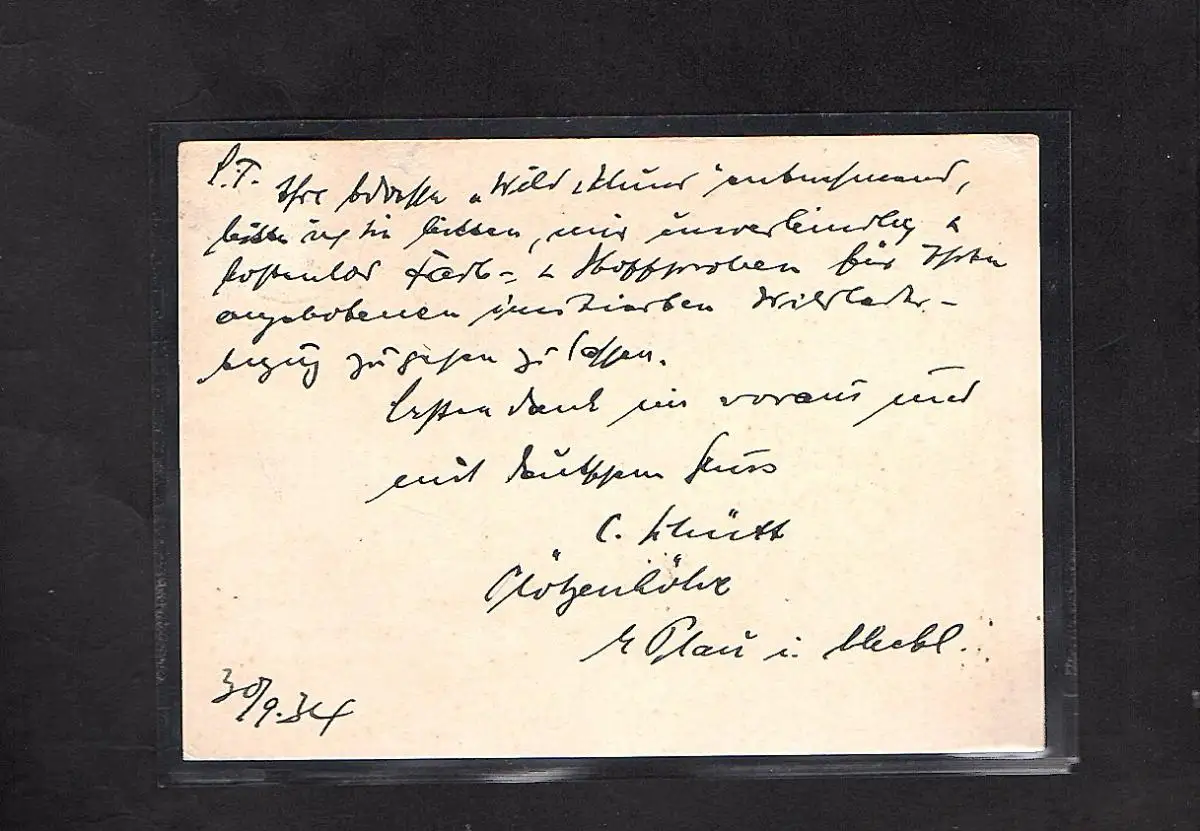 P.T. Ihre Adresse „Wild u. Hund" entnehmend,
bitte ich Sie bitten, mir unverbindlich u
kostenlos Farb- u Stoffproben für Ihren
angebotenen Wildleder-
anzug zugehen zu lassen.
Besten Dank im voraus und
mit deutschem Gruss
C. Schütt
Plötzenhöhe
Plau i. Meckl.
30/9.34